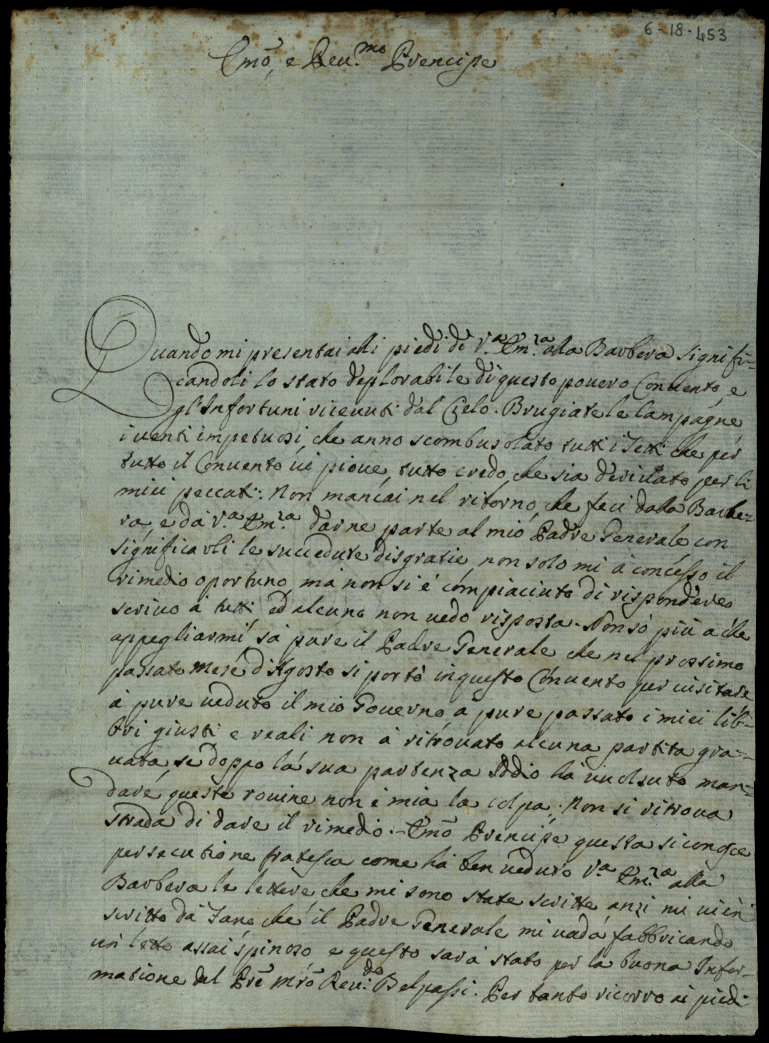 6-18-453
Emõ, e Reu.mo Prencipe
Quando mi presentai alli piedi di V.a Em.za alla Barbera signifi=
candoli lo stato deplorabile di questo pouero Conuento, e
gl'Infortuni riceuuti dal Cielo. Brugiate le Campagne
i uenti impetuosi, che anno scombusolato tutti i Tetti che per
tutto il Conuento ui pioue, tutto credo, che sia deriuato per li
miei peccati. Non mancai nel ritorno, che feci dalla Barbe=
ra, e da V.a Em.za darne parte al mio Padre Generale con
significarli le succedute disgratie, non solo mi à concesso il
rimedio oportuno, mà non si è compiaciuto di rispondere
scriuo à tutti ed alcuno non uedo risposta. Non sò più a che
appegliarmi, sà pure il Padre Generale che nel prossimo
passato mese d'Agosto si portò in questo Conuento per uisitare
à pure ueduto il mio Gouerno à pure passato i miei lib=
bri giusti e reali non à ritrouato alcuna partita gra=
uata, se doppo la sua partenza Iddio hà uuolsuto man=
dare queste rouine non è mia la colpa. Non si ritroua
strada di dare il rimedio. Emõ Prencipe questa si conosce
persecutione fratesca come hà ben ueduto V.a Em.za alla
Barbera le lettere che mi sono state scritte anzi mi uien
scritto da che il Padre Generale mi uada fabbricando
un letto assai spinoso e questo sarà stato per la buona Infor=
matione del Prẽ Mrõ Reu.do Belpassi. Per tanto ricorro ai piedi